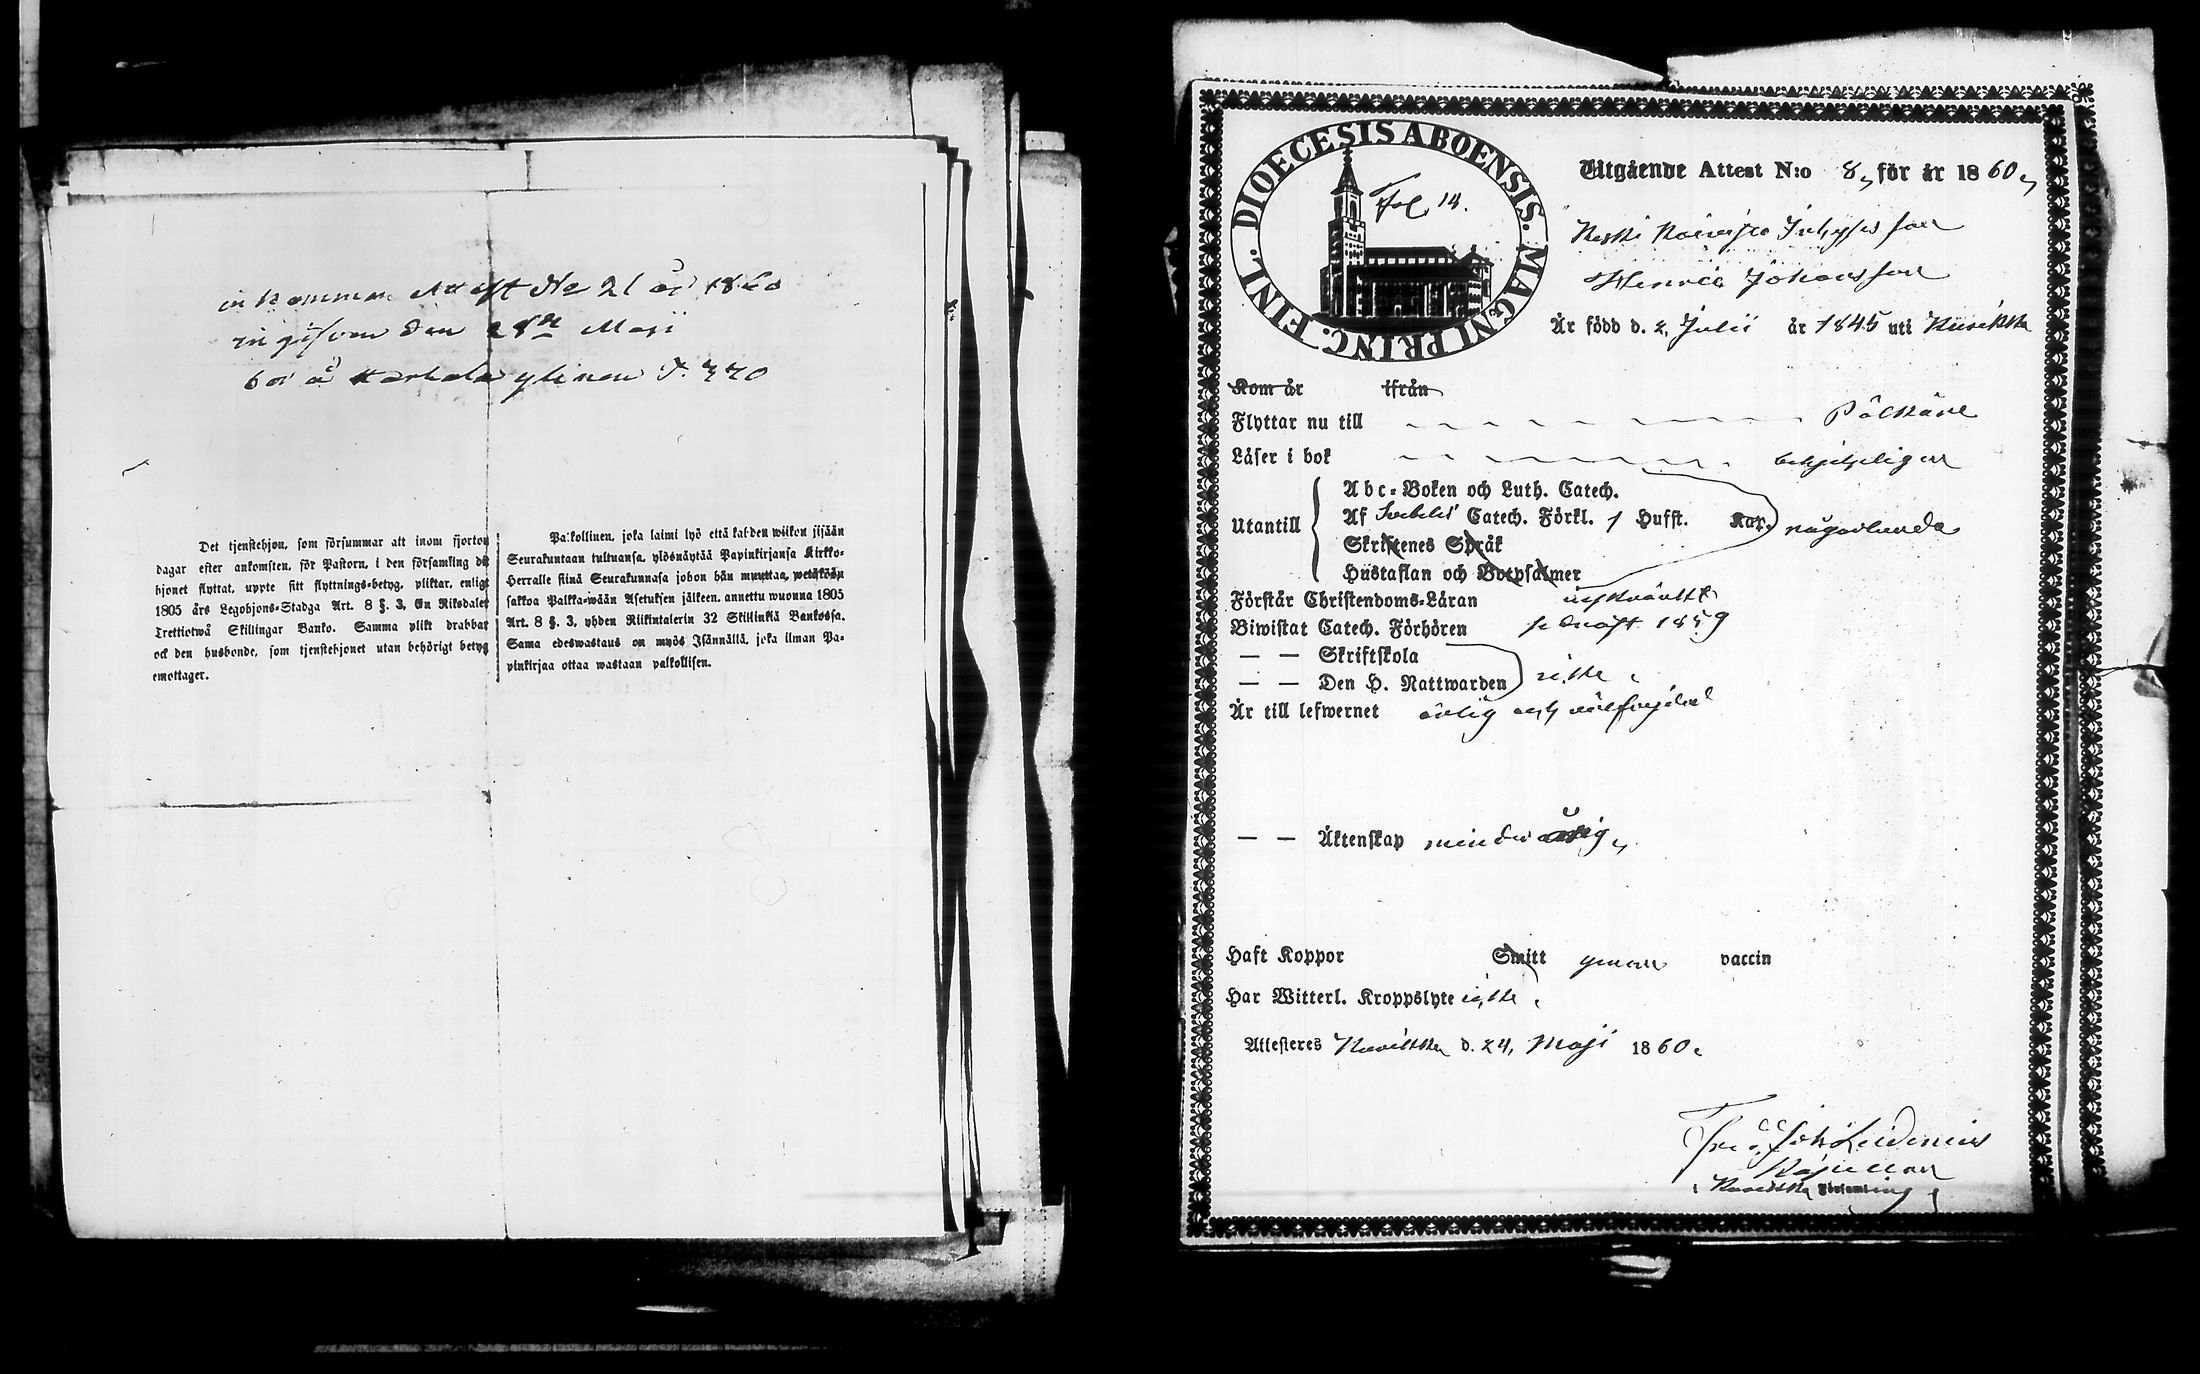 inkommen Attest No 21 år 1860
ingifven den 28de Maji
bor å Harhala ylinen P. 770
Det tjenstehjon, som försummar att inom fjorton
dagar efter ankomsten, för Pastorn, i den församling dit
hjonet flyttat, uppte sitt flyttnings-betyg, pliktar, enligt
1805 års Legohjons-Stadga Art. 8 §. 3, En Riksdaler
Trettiotwå Skillingar Banko. Samma plikt drabbar
ock den husbonde, som tjenstehjonet utan behörigt betyg
emottager.
Palkollinen, joka laimi lyö että kahden wiikon sisään
Seurakuntaan tultuansa, ylösnäytää Papinkirjansa Kirkko-
Herralle siinä Seurakunnasa johon hän muuttaa, wetäköön
sakkoa Palkka-wään Asetuksen jälkeen, annettu wuonna 1805
Art. 8 §. 3, yhden Riikintalerin 32 Skillinkiä Bankossa.
Sama edeswastaus on myös Isännällä, joka ilman Pa-
pinkirjaa ottaa wastaan palkollisen.
FINL. DIOECESIS ABOENSIS. MAGNI PRINC.
Fol. 14.
Utgående Attest N:o 8, för år 1860,
Koivisto
Henric Johansson
Är född d. 2 Julii år 1845 uti
Kom år ifrån
Flyttar nu till Pälkäne
Läser i bok behjelpligen
Utantill
Abc-Boken och Luth. Catech.
Af Svebelii Catech. Förkl. / Hufst. Kap. någorlunda
Skriftenes Språk
Hustaflan och Botpsalmer
Förstår Christendoms-Läran
Biwistat Catech. Förhören sednast 1859
— — Skriftskola
— — Den H. Nattwarden icke
Är till lefwernet ärlig och välfrejdad
— — Äktenskap minderårig,
Haft Koppor Smitt genom vaccin
Har Witterl. Kroppslyte icke
Attesteres d. 24, Maji 1860.
Joh
Kapellan
i Församling